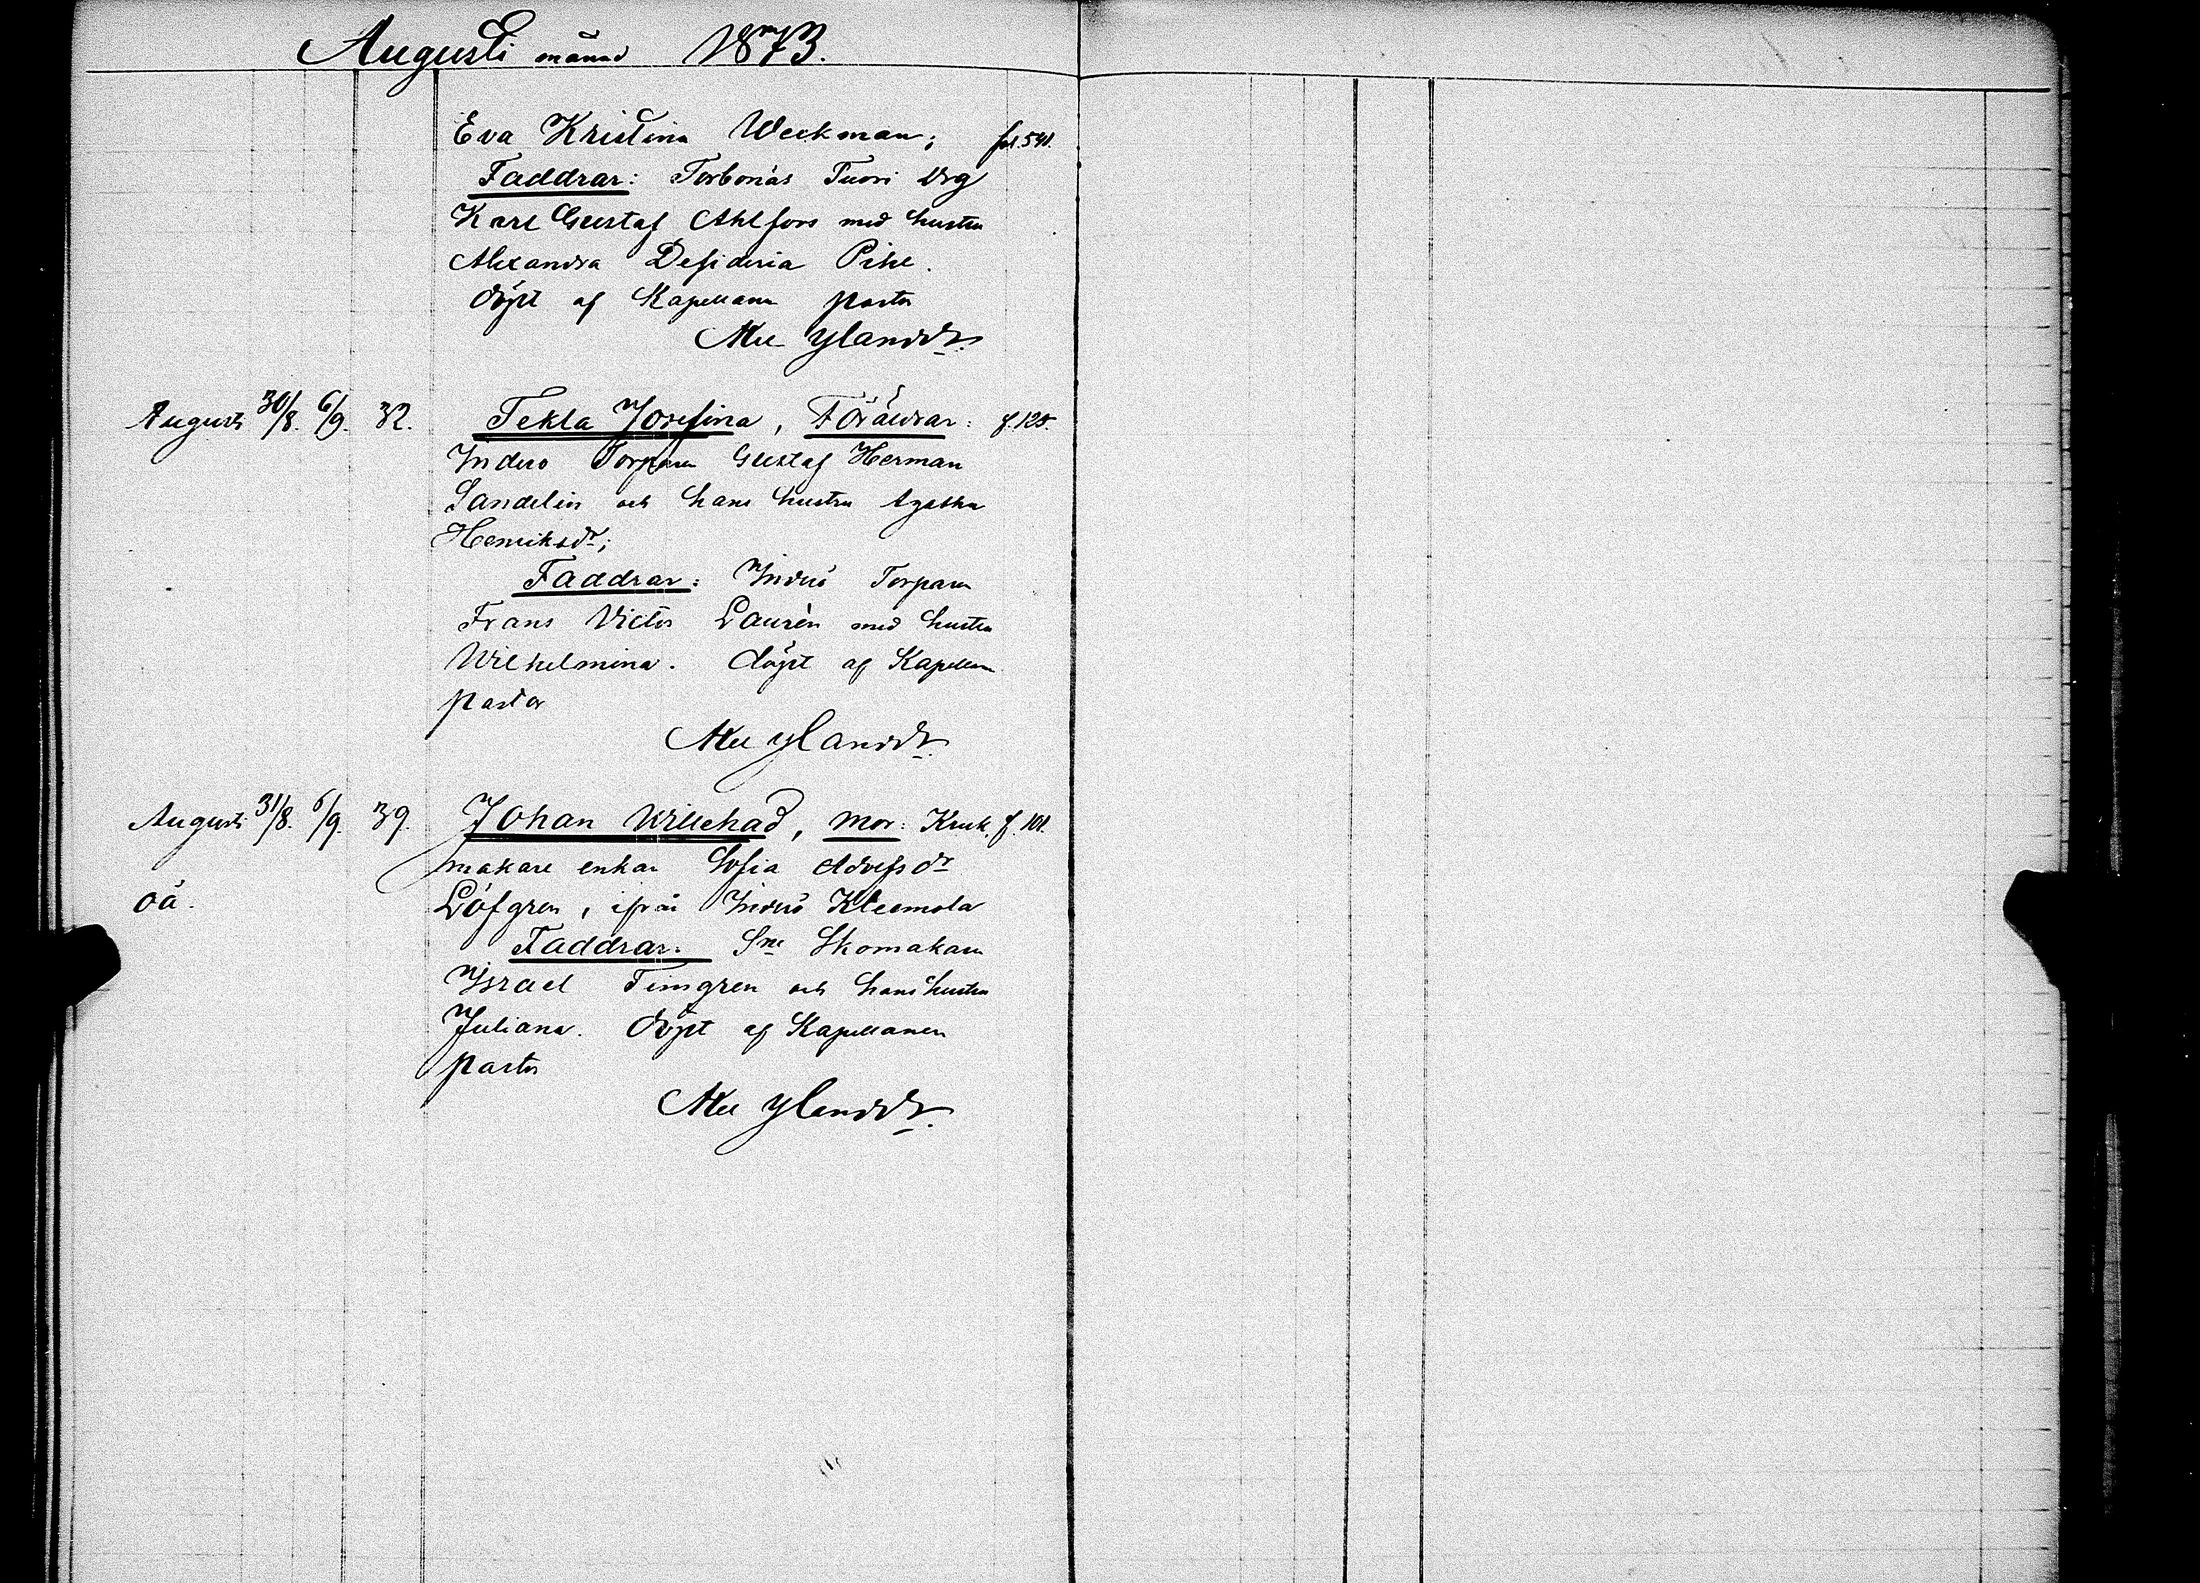 Augusti månad 1873.
Eva Kristina Weckman; fol. 541.
Faddrar: Torbonäs Tuori Drg
Karl Gustaf Ahlfors med hustru
Alexandra Desideria Pihl.
döpt af Kapellanen pastor
Ylandr.
Augusti 30/8. 6/9. 32. Tekla Josefina, Föräldrar: f. 125.
Inderö Torparen Gustaf Herman
Sandelin och hans hustru Agatha
Henriksdr;
Faddrar: Inderö Torparen
Frans Victor Laurén med hustru
Wilhelmina. döpt af Kapellan
pastor
Ylandr.
Augusti 31/8. 6/9. 39. Johan Willehad, mor: Kruk- f. 101.
makare enkan Sofia Adolfsdr
oä. Löfgren, ifrån Inderö Kleemola
Faddrar: Sne Skomakaren
Israel Timgren och hans hustru
Juliana. döpt af Kapellanen
pastor
Ylandr.